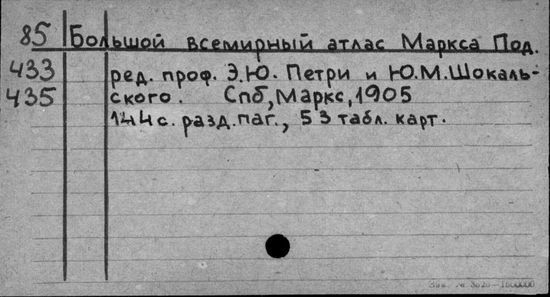 85 Большой всемирный атлас Маркса Под.
433 ред. проф. Э.Ю. Петри и Ю.М.Шокаль-
435 ского. Спб, Маркс, 1905
144с. разд.паг., 53 табл. карт.